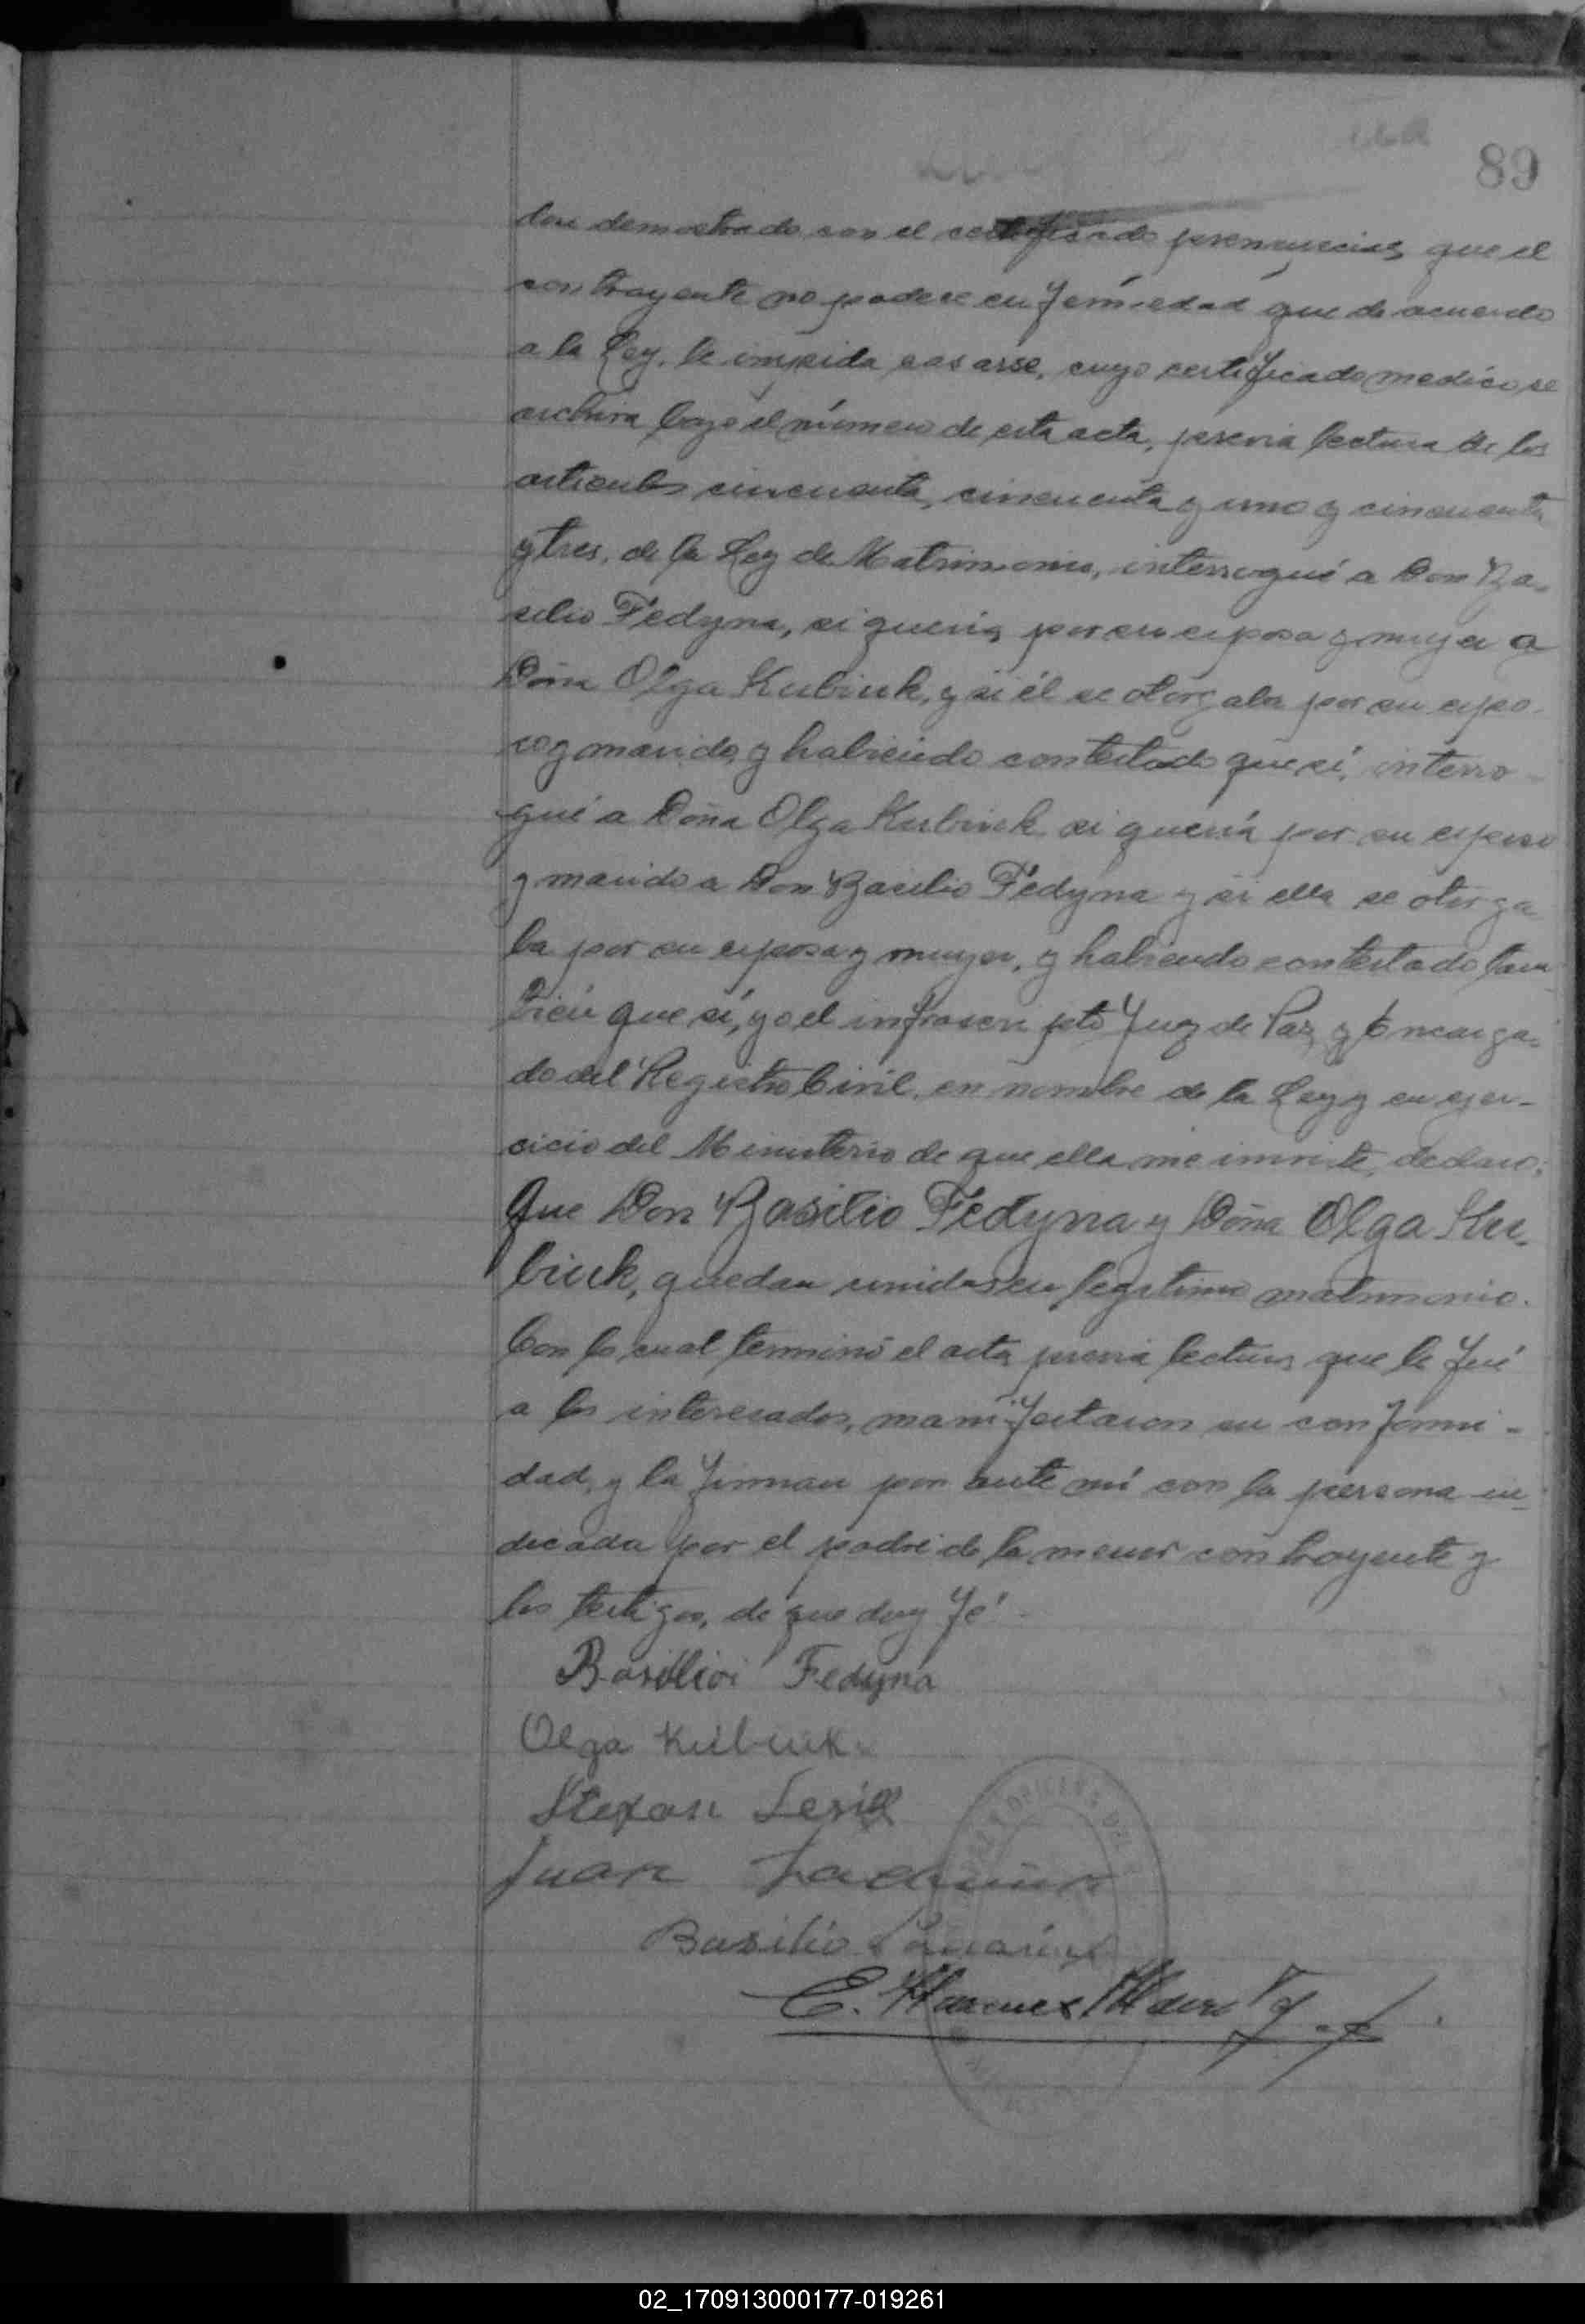 89
dose demostrado con el certificado prenupcial, que el
contrayente no padece enfermedad que de acuerdo
a la Ley, le impida casarse, cuyo certificado medico se
archiva bajo el número de esta acta, previa lectura de los
articulos cincuenta, cincuenta y uno y cincuenta
y tres, de la Ley de Matrimonio, interrogué a Don Ba-
silio Fedyna, si quería por su esposa y mujer a
Doña Olga Kubiuk, y si él se otorgaba por su espo-
so y marido, y habiendo contestado que sí, interro-
gué a Doña Olga Kubiuk si quería por su esposo
y marido a Don Basilio Fedyna y si ella se otorga
ba por su esposa y mujer, y habiendo contestado tam
bién que sí, yo el infrascripto Juez de Paz y Encarga-
do del Registro Civil, en nombre de la Ley y en ejer-
cicio del Ministerio de que ella me inviste, declaro:
Que Don Basilio Fedyna y Doña Olga Ku-
biuk, quedan unidos en legítimo matrimonio.
Con lo cual terminó el acta, previa lectura, que le fué
a los interesados, manifestaron su conformi-
dad, y la firman por ante mí con la persona in-
dicada por el padre de la menor contrayente y
los testigos, de que doy fé.
Basilio Fedyna
Olga Kubiuk
Stefan
Juan
Basilio
E.
02_170913000177-019261